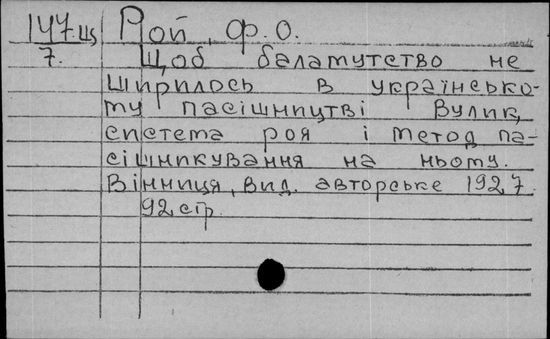 147.щ Рой, Ф.О.
7. Щоб баламутство не
ширилось в українсько-
му пасішництві Вулик,
система роя і метод па-
сішникування на ньому.
Вінниця, вид. авторське 1927.
92 стр.